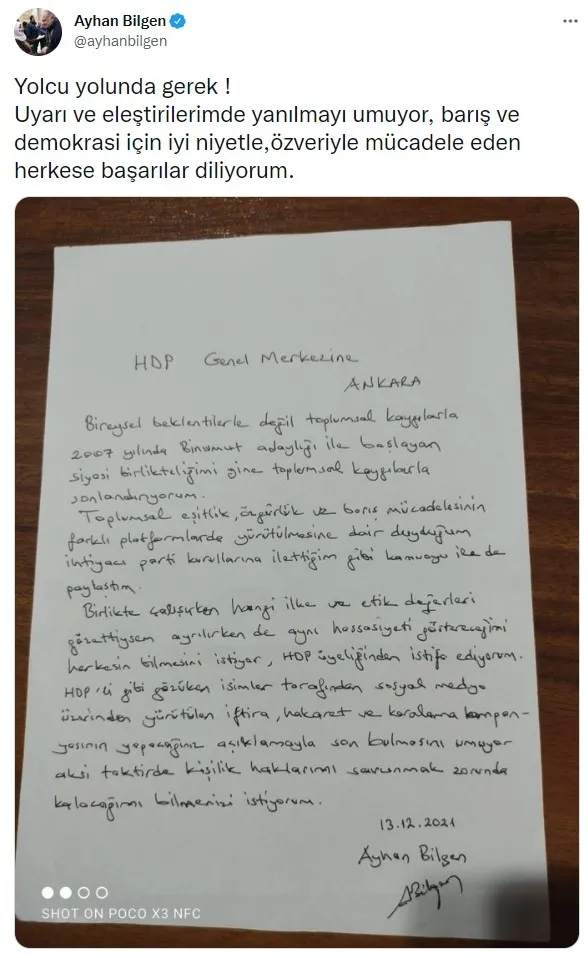 Ayhan Bilgen
@ayhanbilgen
Yolcu yolunda gerek !
Uyarı ve eleştirilerimde yanılmayı umuyor, barış ve
demokrasi için iyi niyetle,özveriyle mücadele eden
herkese başarılar diliyorum.
HDP Genel Merkezine
ANKARA
Bireysel beklentilerle değil toplumsal kaygılarla
2007 yılında Binumut adaylığı ile başlayan
siyasi birlikteliğimi yine toplumsal kaygılarla
sonlandırıyorum.
Toplumsal eşitlik, özgürlük ve barış mücadelesinin
farklı platformlarda yürütülmesine dair duyduğum
ihtiyacı parti kurullarına ilettiğim gibi kamuoyu ile de
paylaştım.
Birlikte çalışırken hangi ilke ve etik değerleri
gözettiysem ayrılırken de aynı hassasiyeti göstereceğimi
herkesin bilmesini istiyor, HDP üyeliğinden istifa ediyorum.
HDP'li gibi gözüken isimler tarafından sosyal medya
üzerinden yürütülen iftira, hakaret ve karalama kampan-
yasının yapacağınız açıklamayla son bulmasını umuyor
aksi taktirde kişilik haklarımı savunmak zorunda
kalacağımı bilmenizi istiyorum.
13.12.2021
Ayhan Bilgen
ABilgen
SHOT ON POCO X3 NFC